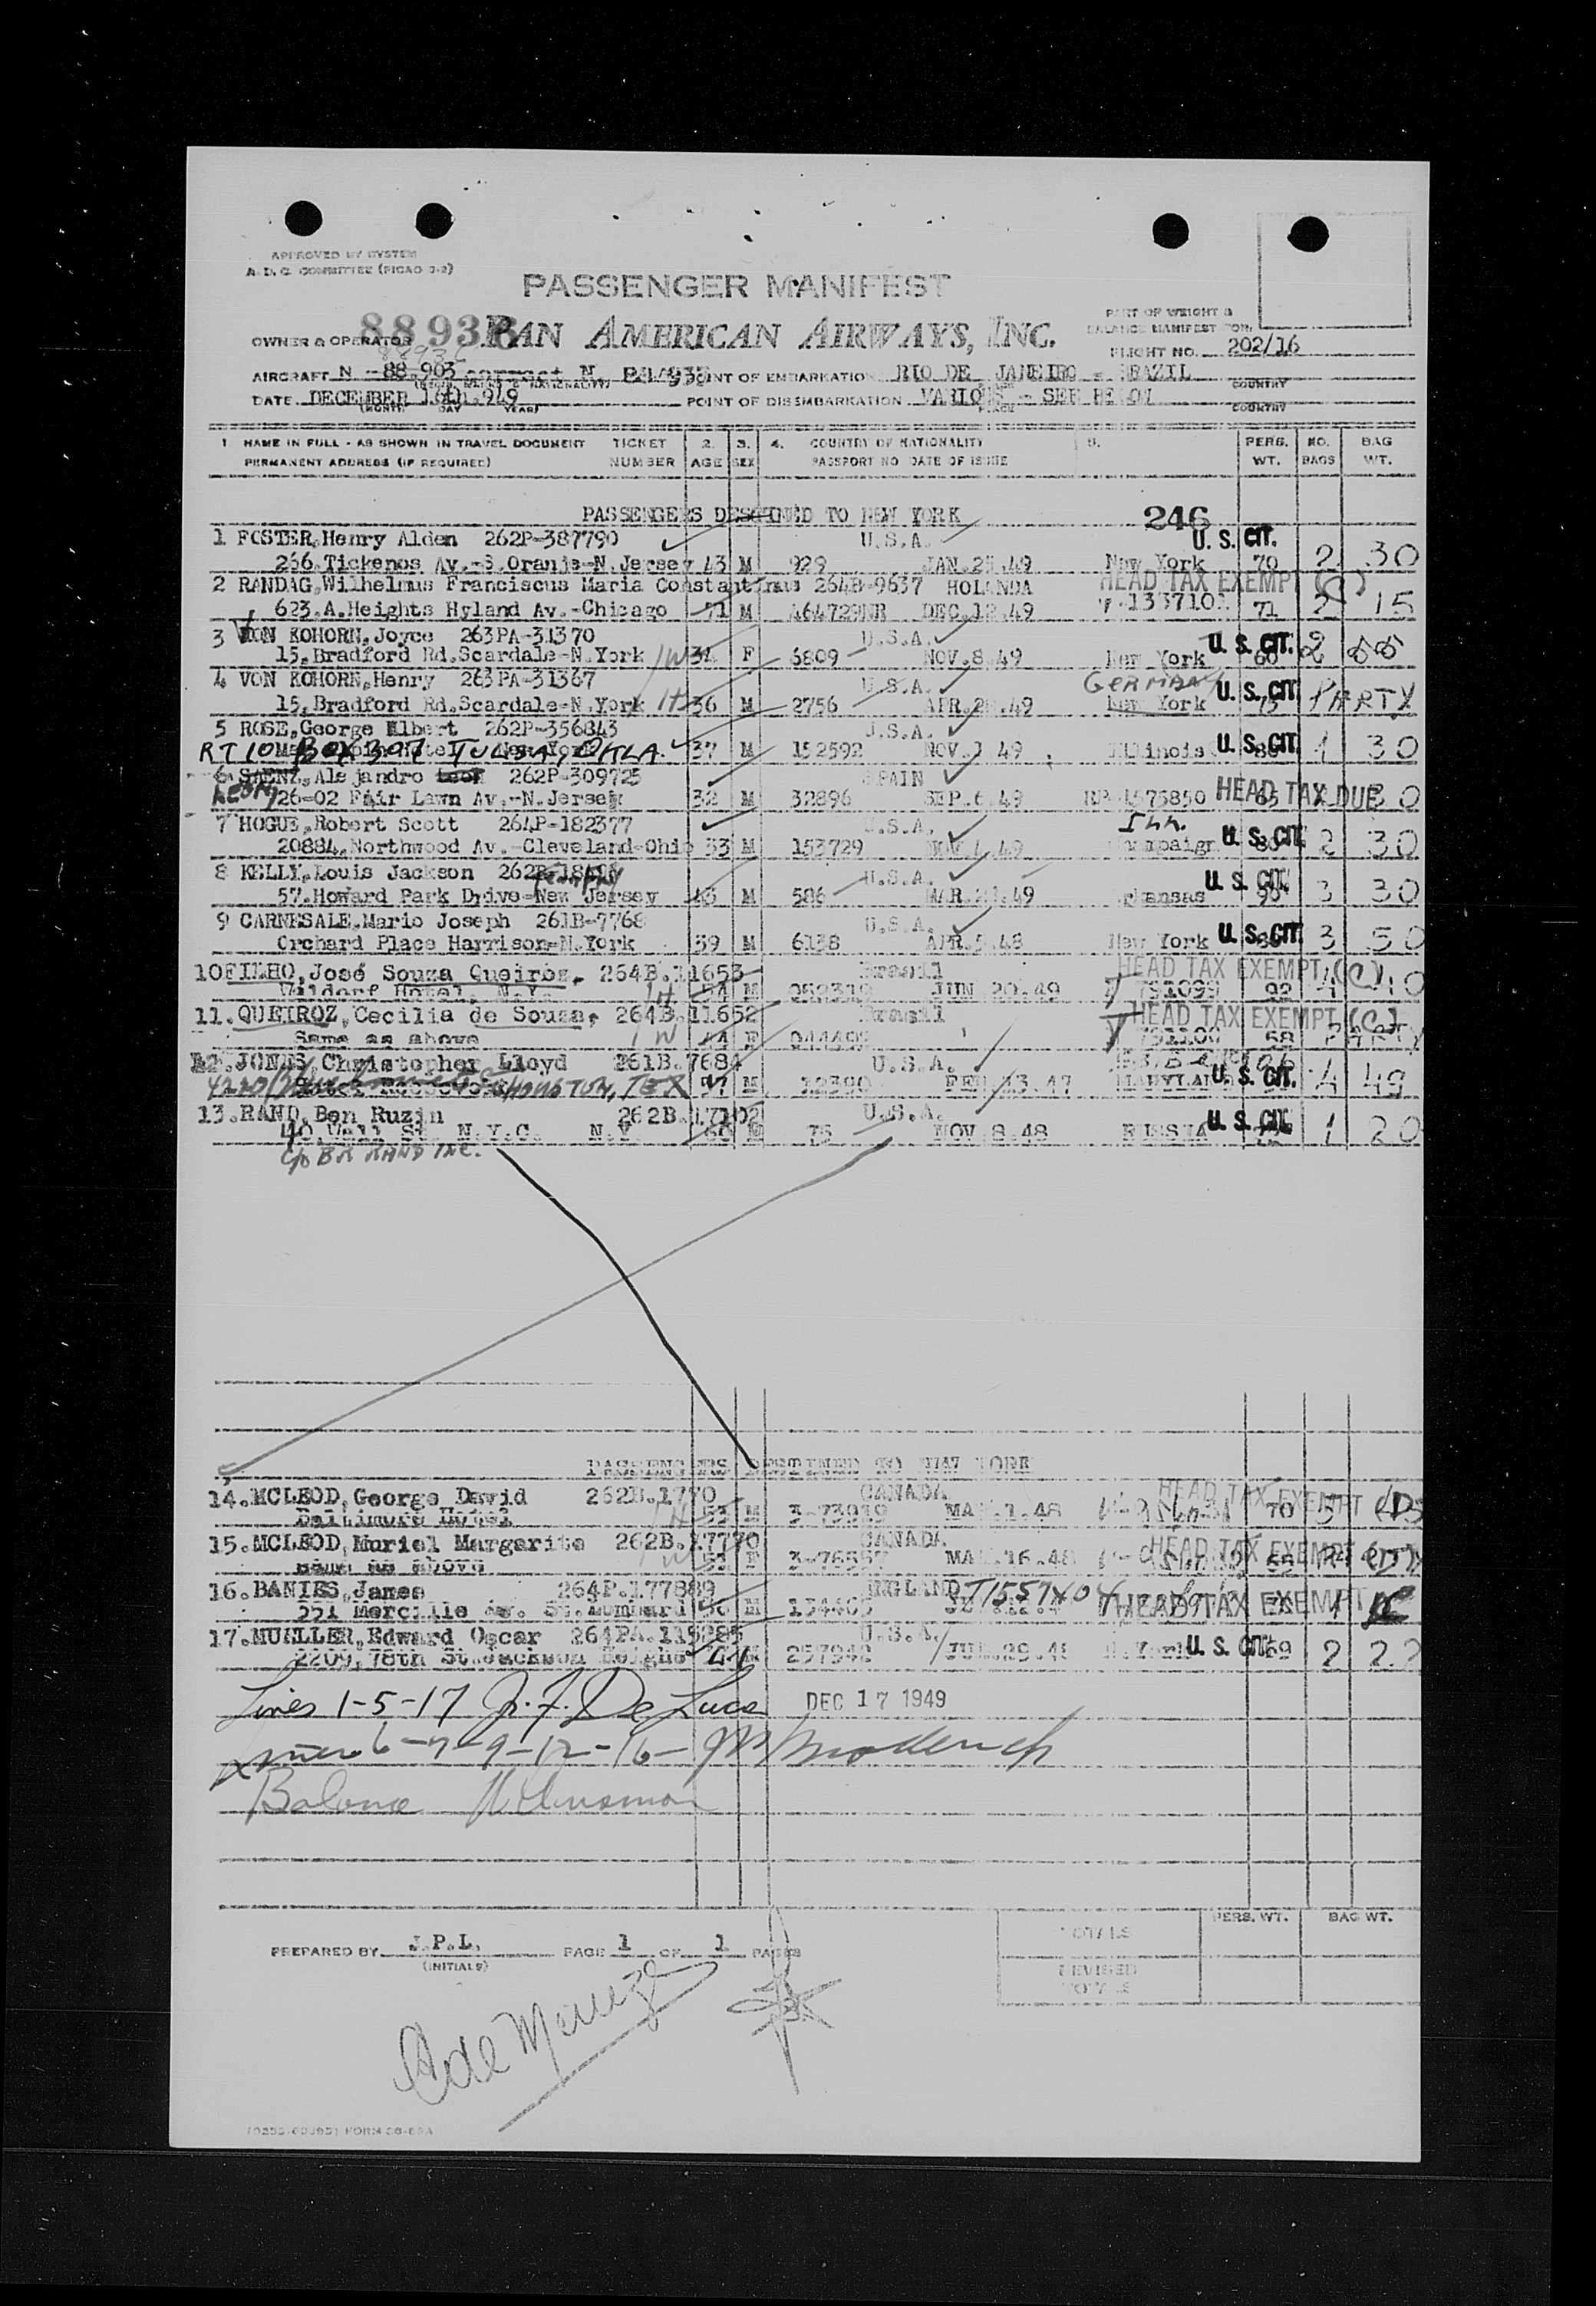 APPROVED BY SYSTEM
A.D.C. COMMITTEE (PICAO 3-2)
PASSENGER MANIFEST
PART OF WEIGHT &
BALANCE MANIFEST FOR:
OWNER & OPERATOR 88936 PAN AMERICAN AIRWAYS, INC.
FLIGHT NO. 202/16
AIRCRAFT N -88.903 POINT OF EMBARKATION RIO DE JANEIRO - BRAZIL
COUNTRY
DATE DECEMBER 16th.949 POINT OF DISEMBARKATION VARIOUS - SEE BELOW
(MONTH) DAY YEAR) PLACE COUNTRY
1 NAME IN FULL - AS SHOWN IN TRAVEL DOCUMENT TICKET 2. 3. 4. COUNTRY OF NATIONALITY 5. PERS. NO. BAG
PERMANENT ADDRESS (IF REQUIRED) NUMBER AGE SEX PASSPORT NO DATE OF ISSUE WT. BAGS WT.
PASSENGERS DESTINED TO NEW YORK 246
1 FOSTER,Henry Alden 262P-387790 U.S.A. U. S. CIT.
266.Tickenos Av.-S.Oranje-N.Jersey 43 M 929 JAN.25.49 New York 70 2 30
2 RANDAG,Wilhelmus Franciscus Maria Constantinus 264B-9637 HOLANDA HEAD TAX EXEMPT (C)
623.A.Heights Hyland Av.-Chicago 71 M A64729NR DEC.12.49 71 2 15
3 VON KOHORN,Joyce 263PA-31370 U.S.A. U. S. CIT.
15,Bradford Rd.Scardale-N.York W 34 F 6809 NOV.8.49 New York 60 2 55
4 VON KOHORN,Henry 263PA-31367 U.S.A. GERMANY U. S. CIT.
15,Bradford Rd.Scardale-N.York H 36 M 2756 APR.2 .49 New York 75 PARTY
5 ROSE,George Elbert 262P-356843 U.S.A.
RT 10 BOX 307 TULSA, OKLA. 37 M 152592 NOV.3 49 Illinois U. S. CIT. 1 30
6 SAENZ,Alejandro Leon 262P-309725 SPAIN
LEON 26-02 Fair Lawn Av.-N.Jersey 32 M 32896 SEP.6.49 HEAD TAX DUE 30
7 HOGUE,Robert Scott 264P-182377 U.S.A. Ill.
20884,Northwood Av.-Cleveland-Ohio 53 M 153729 NOV.4.49 Champaign U. S. CIT. 2 30
8 KELLY,Louis Jackson U.S.A. U. S. CIT.
57.Howard Park Drive-New Jersey 43 M 586 MAR.2 .49 Arkansas 90 3 30
9 CARNESALE,Mario Joseph 261B-7768 U.S.A.
Orchard Place Harrison-N.York 39 M 6138 APR.5.48 New York U. S. CIT. 3 50
10 FILHO,José Souza Queirós. 264B.11653 Brasil HEAD TAX EXEMPT (C)
Waldorf Hotel, N.Y. H 54 M 052319 JUN 20.49 V 791099 92 4 40
11.QUEIROZ,Cecilia de Souza, 264B.11652 Brasil HEAD TAX EXEMPT (C)
Same as above W 44 F V 791100 58 PARTY
12.JONES,Christopher Lloyd 261B.7684 U.S.A.
HOUSTON, TEX 57 M 12390 FEB.13.47 MARYLAND U. S. CIT. 4 49
13.RAND,Ben Ruzin 262B.17102 U.S.A.
40,Wall St. N.Y.C. N.Y. 60 M 75 NOV.8.48 RUSSIA U. S. CIT. 1 20
C/O BR RAND INC.
PASSENGERS DESTINED TO NEW YORK
14.MCLEOD,George David 262B.1770 CANADA HEAD TAX EXEMPT (D)
Baltimore Hotel H 53 M 3-73919 MAR.1.48 70 5
15.MCLEOD,Muriel Margarite 262B.17770 CANADA HEAD TAX EXEMPT
same as above W 51 F MAR.16.48
16.BANIES,James 264P.177889 ENGLAND
M HEAD TAX EXEMPT
17.MUELLER,Edward Oscar 264PA.115285 U.S.A.
2209,78th St.Jackson Heighs 41 M 257942 JUL.29.48 N.York U. S. CIT. 69 2 22
Lines 1-5-17 J. F. De Luca DEC 17 1949
Lines 6-7-9-12-16-
Balance
PREPARED BY J.P.L. PAGE 1 OF 1 PAGES
(INITIALS)
PERS. WT. BAG WT.
TOTALS
REVISED
TOTALS